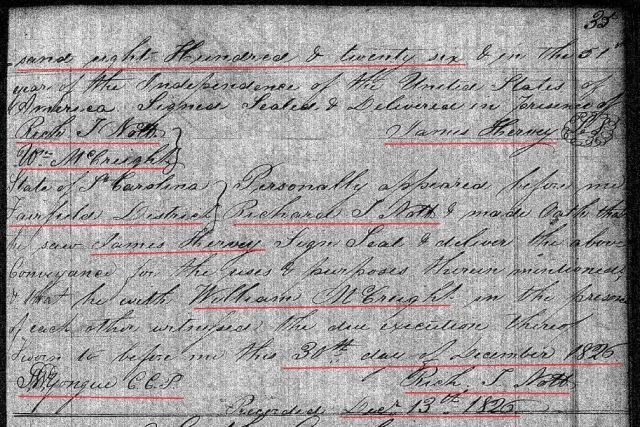 35
sand eight Hundred & twenty six & in the 51st
year of the Independence of the United States of
America Signed Sealed & Delivered in presence of
Rich. T Nott
James Hervey
Wm McCreight
State of So Carolina Personally appeared before me
Fairfield District Richard T Nott & made Oath that
he saw James Hervey Sign Seal & deliver the above
Conveyance for the uses & purposes therein mentioned,
& that he with William McCreight in the presence
of each other witnessed the due execution thereof
Sworn to before me this 30th day of December 1826
Rich. T Nott
Recorded Decr 13th 1826